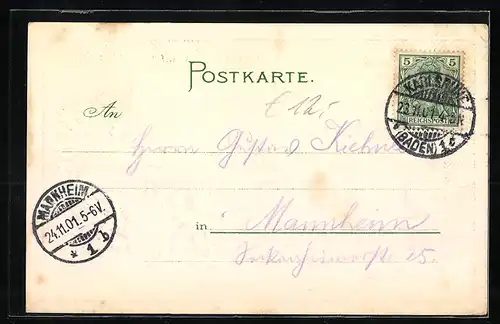 5 5
POSTKARTE.
KARLSRUHE
23.11.01.
REICHSPOST
(BADEN) 1
An
Herrn Gustav
MANNHEIM.
24.11.01. 5-6V.
* 1 b
in Mannheim
15.